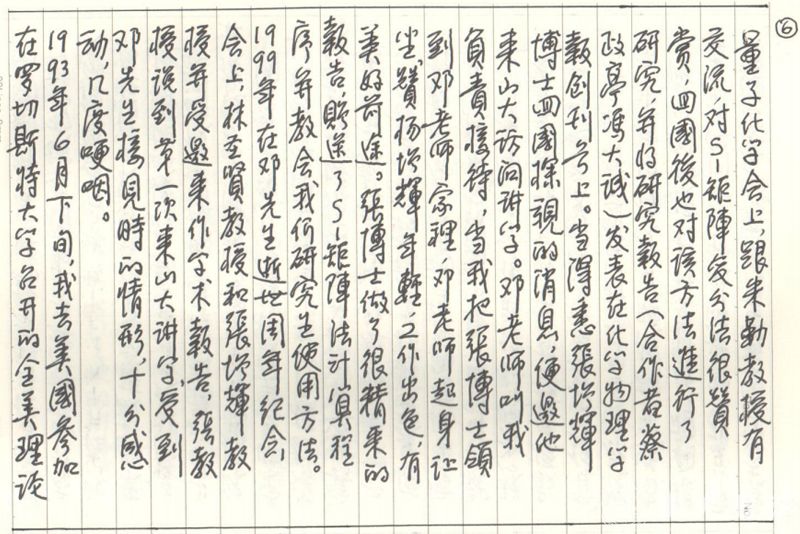 ⑥
量子化学会上，跟朱勒教授有
交流，对S-矩陣变分法很贊
赏，回國後也对该方法進行了
研究，并将研究報告（合作者蔡
政亭、馮大诚）发表在化学物理学
報创刊号上。当得悉張增輝
博士回國探親的消息，便邀他
来山大访问讲学。邓老师叫我
負責接待，当我把張博士領
到邓老师家裡，邓老师起身让
坐，贊扬增輝年輕，工作出色，有
美好前途。張博士做了很精采的
報告，贈送了S-矩陣法计算程
序并教会我们研究生使用方法。
1999年在邓先生逝世周年紀念
会上，林圣賢教授和張增輝教
授并受邀来作学术報告，張教
授说到第一次来山大讲学，受到
邓先生接見時的情形，十分感
动，几度哽咽。
1993年6月下旬，我去美國参加
在罗切斯特大学召开的全美理论